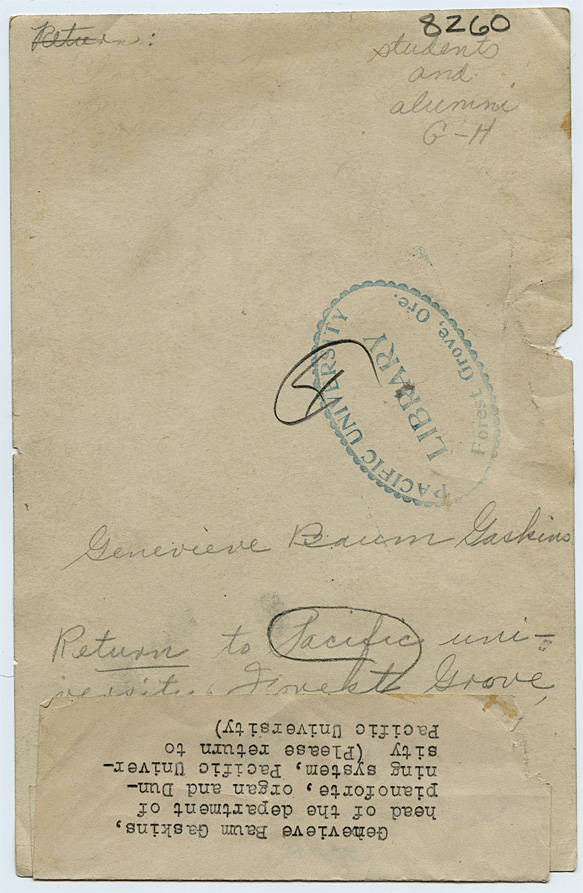 Return:
8260
students
and
alumni
G-H
PACIFIC UNIVERSITY
LIBRARY
Forest Grove, Ore.
Genevieve Baum Gaskins
Return to Pacific uni-
versity, Forest Grove,
Genevieve Baum Gaskins,
head of the department of
pianoforte, organ and Dun-
ning system, Pacific Univer-
sity (Please return to
Pacific University)